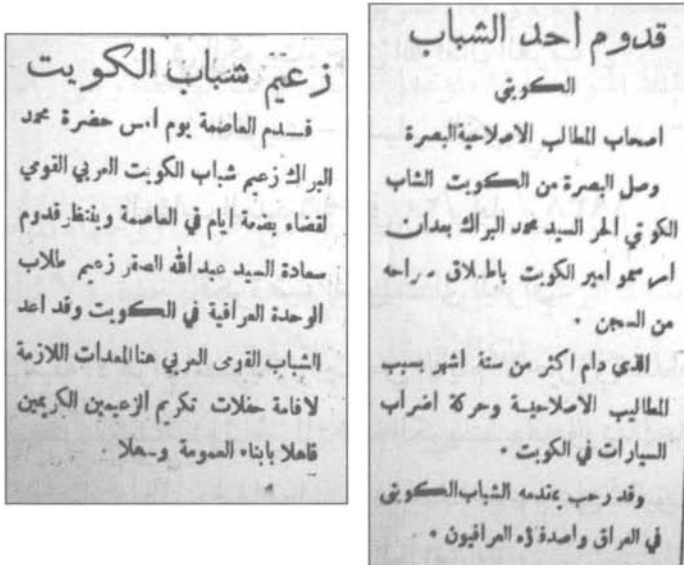 قدوم احد الشباب
الكويتى
اصحاب المطالب الاصلاحية البصرة
وصل البصرة من الكويت الشاب
الكويتي الحر السيد محمد البراك بعدان
امر سمو امير الكويت باطلاق سراحه
من السجن .
الذي دام اكثر من ستة اشهر بسبب
المطاليب الاصلاحية وحركة اضراب
السيارات في الكويت .
وقد رحب بمقدمه الشباب الكويتى
في العراق واصدقاؤه العراقيون .
زعيم شباب الكويت
قدم العاصمة يوم امس حضرة محمد
البراك زعيم شباب الكويت العربي القومي
لقضاء بضعة ايام في العاصمة وينتظر قدوم
سعادة السيد عبد الله الصقر زعيم طلاب
الوحدة العراقية في الكويت وقد اعد
الشباب القومى العربي هنا المعدات اللازمة
لاقامة حفلات تكريم الزعيمين الكريمين
فاهلا بابناء العمومة وسهلا .